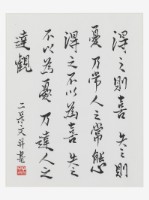 得之則喜失之則
憂乃常人之常態
得之不以為喜失之
不以為憂乃達人之
達觀